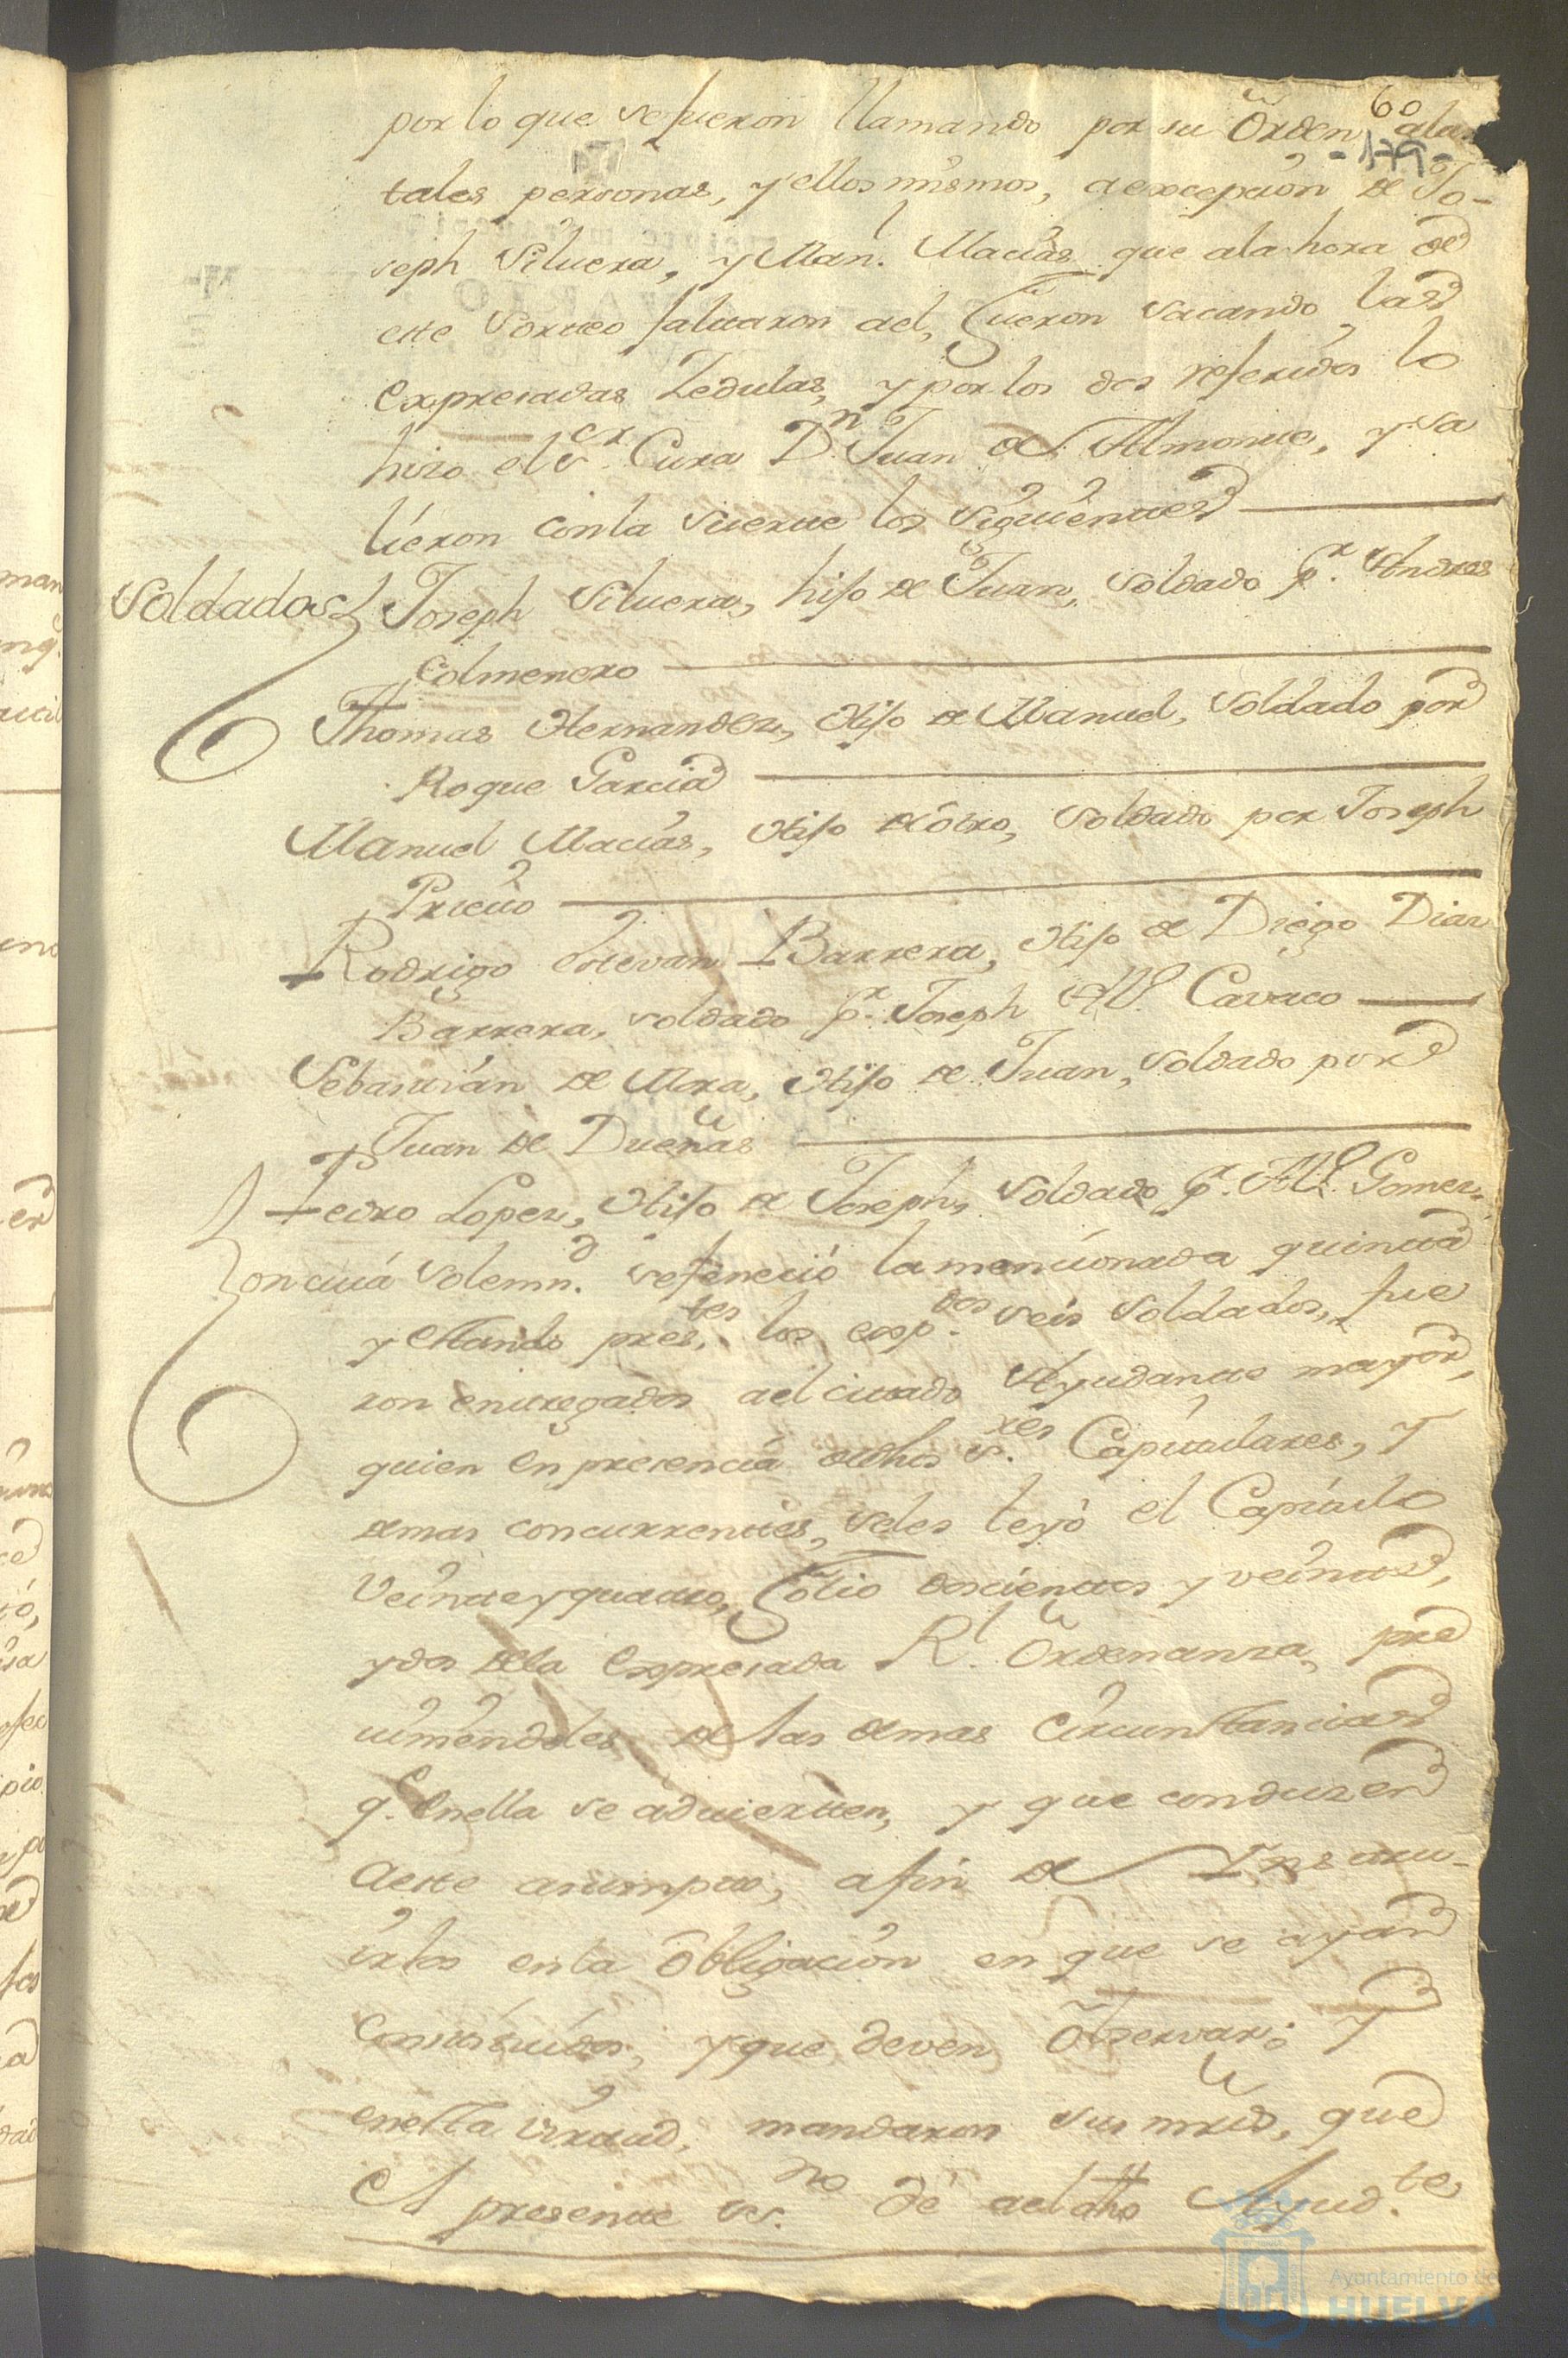 60
-179-
por lo que se fueron llamando por su Orden a las
tales personas, y ellos mismos, a excepcion de Jo-
seph Silvera, y Man.l Macias que ala hora de
este Sorteo faltaron ael, fueron sacando las
expresadas Zedulas, y por los dos referidos lo
hizo el s.or Cura D.n Juan de Almonte, y sa
lieron con la suerte los siguientes
Soldados Joseph Silvera, hijo de Juan, soldado p.r Andres
Colmenero
Thomas Hernandez, Hijo de Manuel, soldado por
Roque Garcia
Manuel Macias, Hijo de otro, soldado por Joseph
Prieto
Rodrigo Estevan Barrera, Hijo de Diego Diaz
Barrera, soldado p.r Joseph Al.e Cavaco
Sebastian de Mora, Hijo de Juan, soldado por
Juan de Dueñas
Pedro Lopez, Hijo de Joseph, soldado p.r Al.e Gomez
Con cuia solemn.d se feneció la mencionada quinta
y estando pres.tes los exsp.dos seis soldados, fue
ron entregados ael citado Ayudante mayor,
quien en presencia de dhos s.res Capitulares, y
demas concurrentes, se les leyò el Capitulo
veinte y quatro, folio doscientos y veinte,
y dos de la Expresada R.l Ordenanza, pre
viniendoles de las demas circunstancias
q.e en ella se advierten, y que conduzen
a este asumpto, a fin de Instru-
irlos en la Obligacion en que se ayan
constituidos, y que deven Observar; y
en esta virtud, mandaron sus mrds, que
el presente es.no dè ael dho Ayud.te
Ayuntamiento de
HUELVA